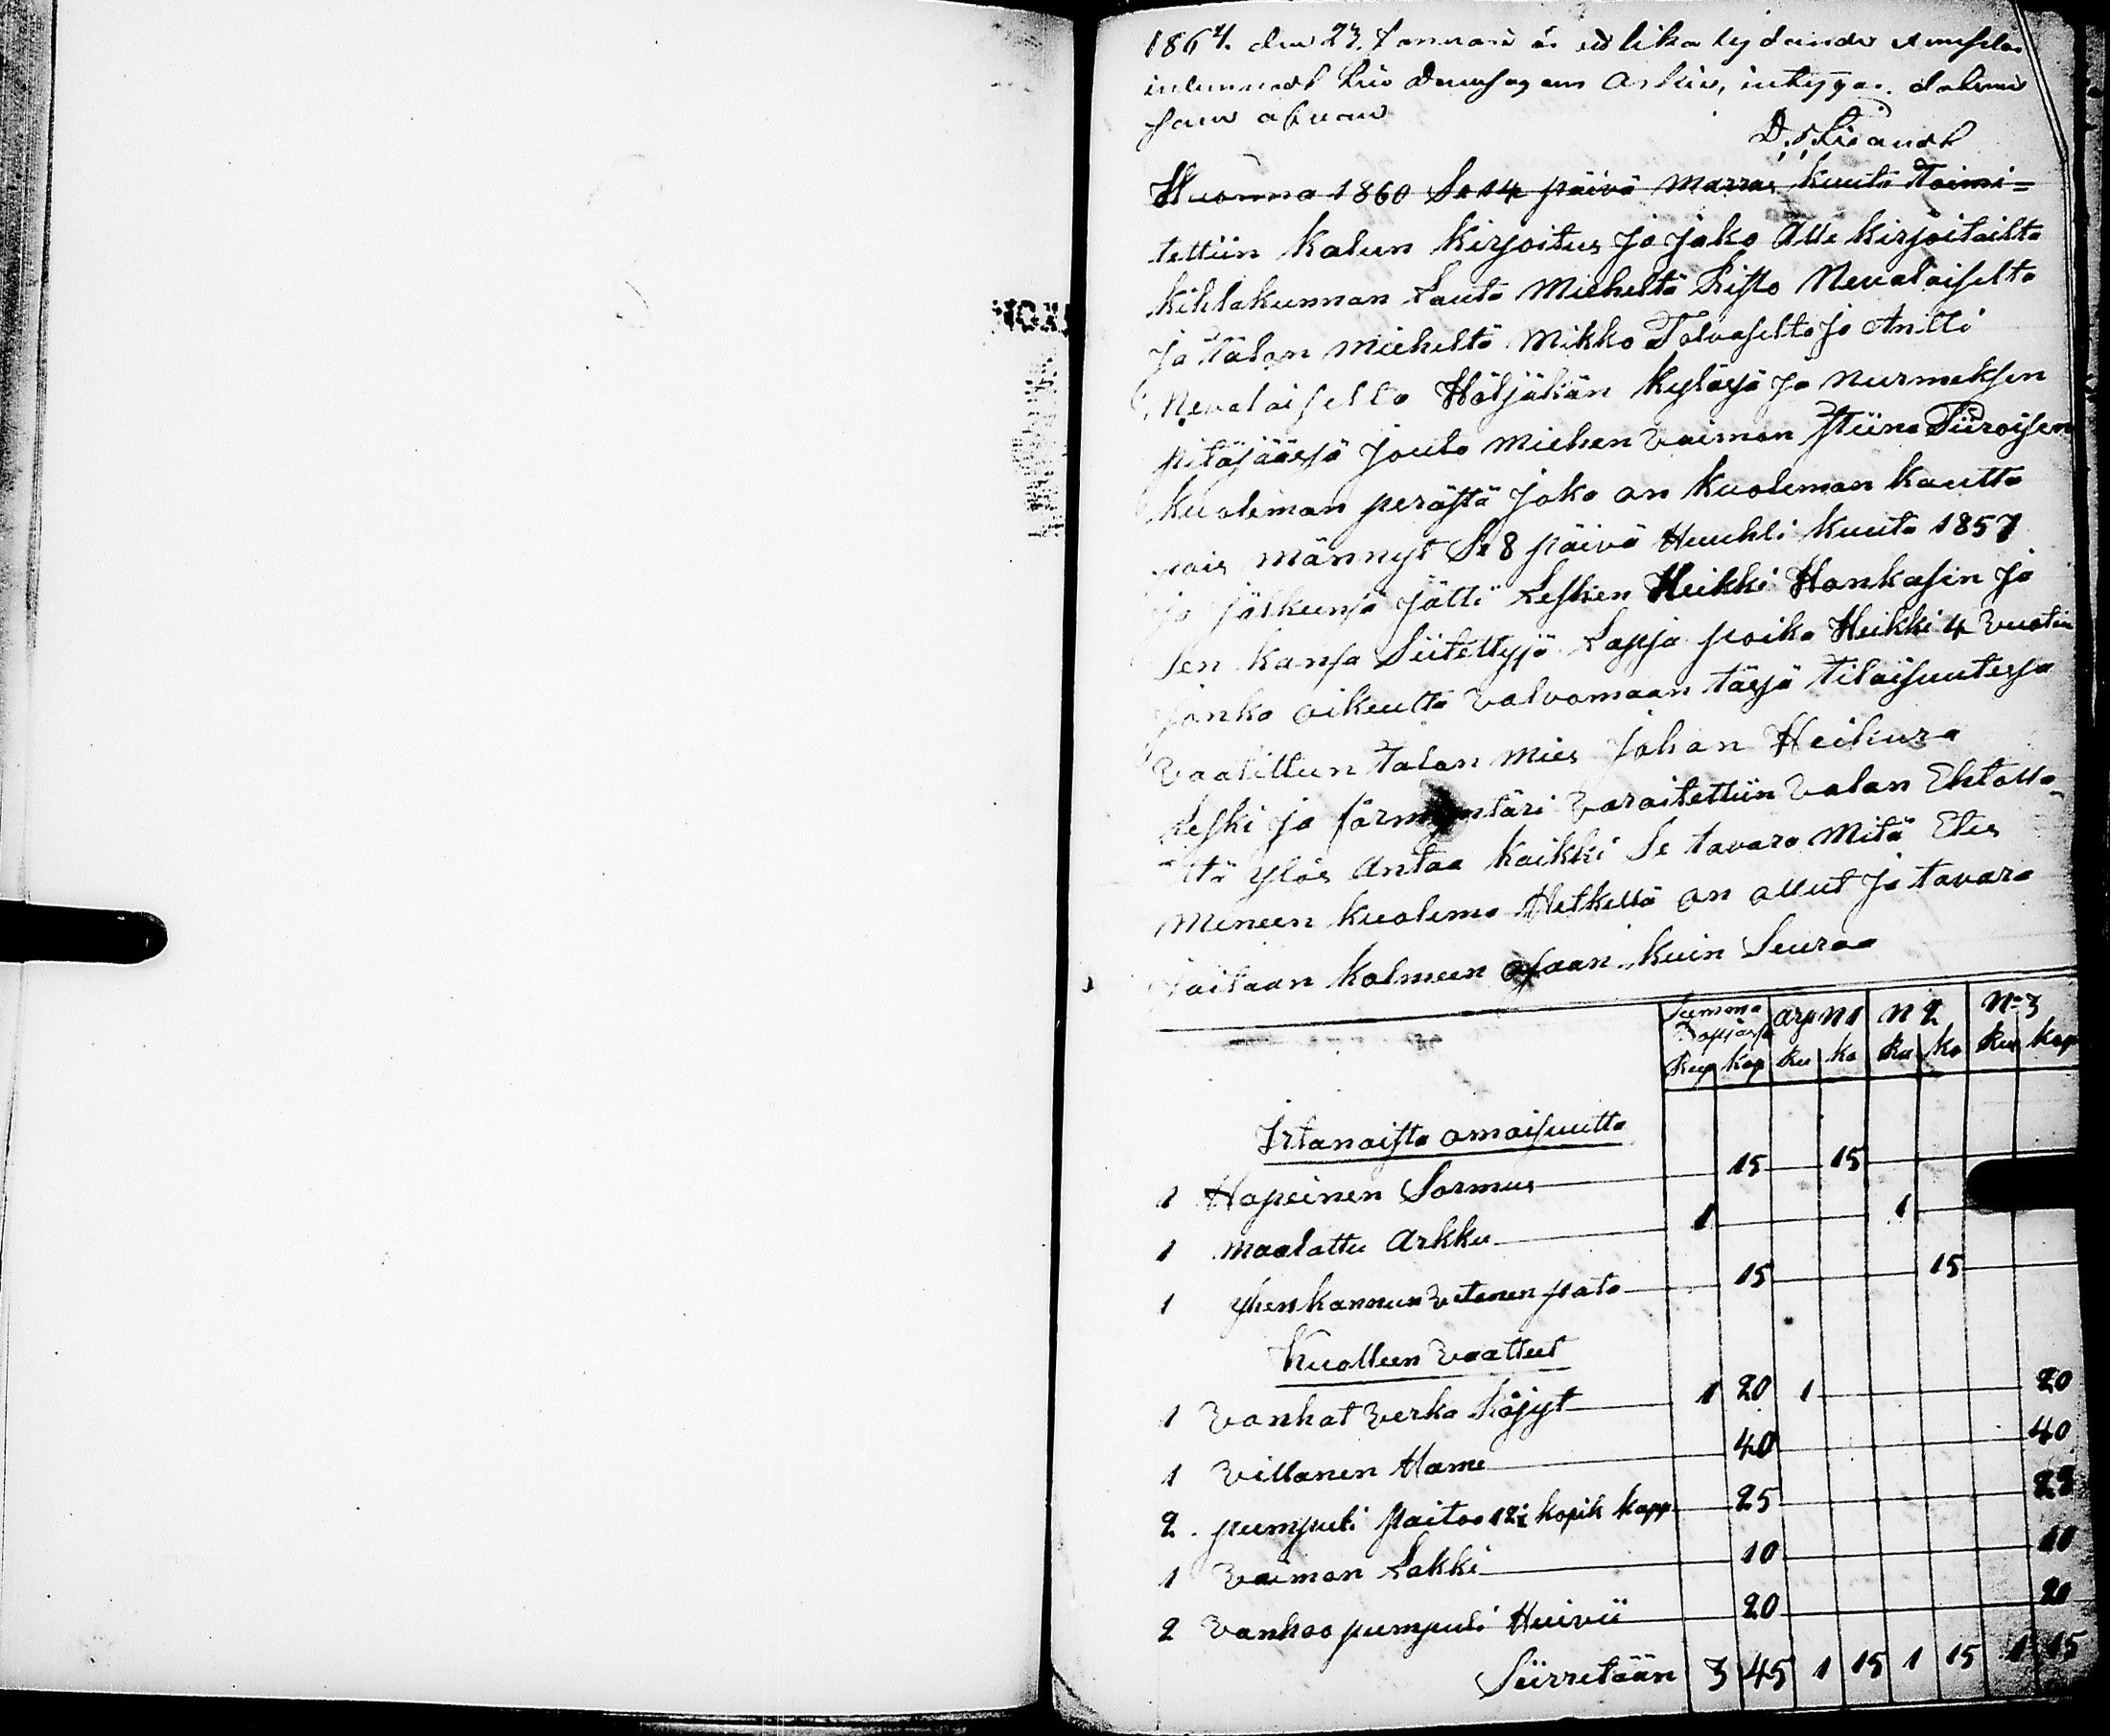 1861. den 23. Januari är ett lika lydande exemplar
inlemnadt till Domsagans Arkiv, intygar. datum
som ofvan
Wuonna 1860 Se 14 päivä marras kuuta Toimi=
tettiin kalun kirjoitus ja jako Alle kirjoitailta
kihlakunnan Lauta Mieheltä Risto Nevalaiselta
ja talon mieheltä Mikko Tolvaselta ja Antti
Nevalaiselta Höljäkän kylässä ja Nurmeksen
pitäjäässä Joulo miehen vaimon Stiina Piiroisen
kuoleman perästä joka on kuoleman kautta
pois männyt Se 8 päivä Huuhti kuuta 1857
ja jälkeensä jätti Lesken Heikki Honkasen ja
sen kansa Siitettyjä Lapsia poika Heikki 4 vuotin
jonka oikeutta valvomaan tässä tilaisuutessa
vaalittun talon mies Johan Heikura
Leski ja förmyntäri varoitettiin valan Ehtolla
että ylös Antaa kaikki Se tavara Mitä Etes
Meneen kuolema Hetkellä on ollut ja tavara
jaitaan kolmeen osaan kuin Seuraa
Summa arp N 1 N 2 N= 3
Rup kop Ru ko Ru ko Rup kop
Irtanaista omaisuutta
1 Hopeinen Sormus 15 15
1 maalattu Arkku 1 1
1 yhen kannun vetenen pata 15 15
Kuolleen vaatteet
1 vanhat verka Röjyt 1 20 1 20
1 villanen Hame 40 40
2 pumpuli paitoo 12½ kopik kapp 25 25
1 vaimon Lakki 10 10
2 vanhoo pumpuli Huivii 20 20
Siirretään 3 45 1 15 1 15 1 15